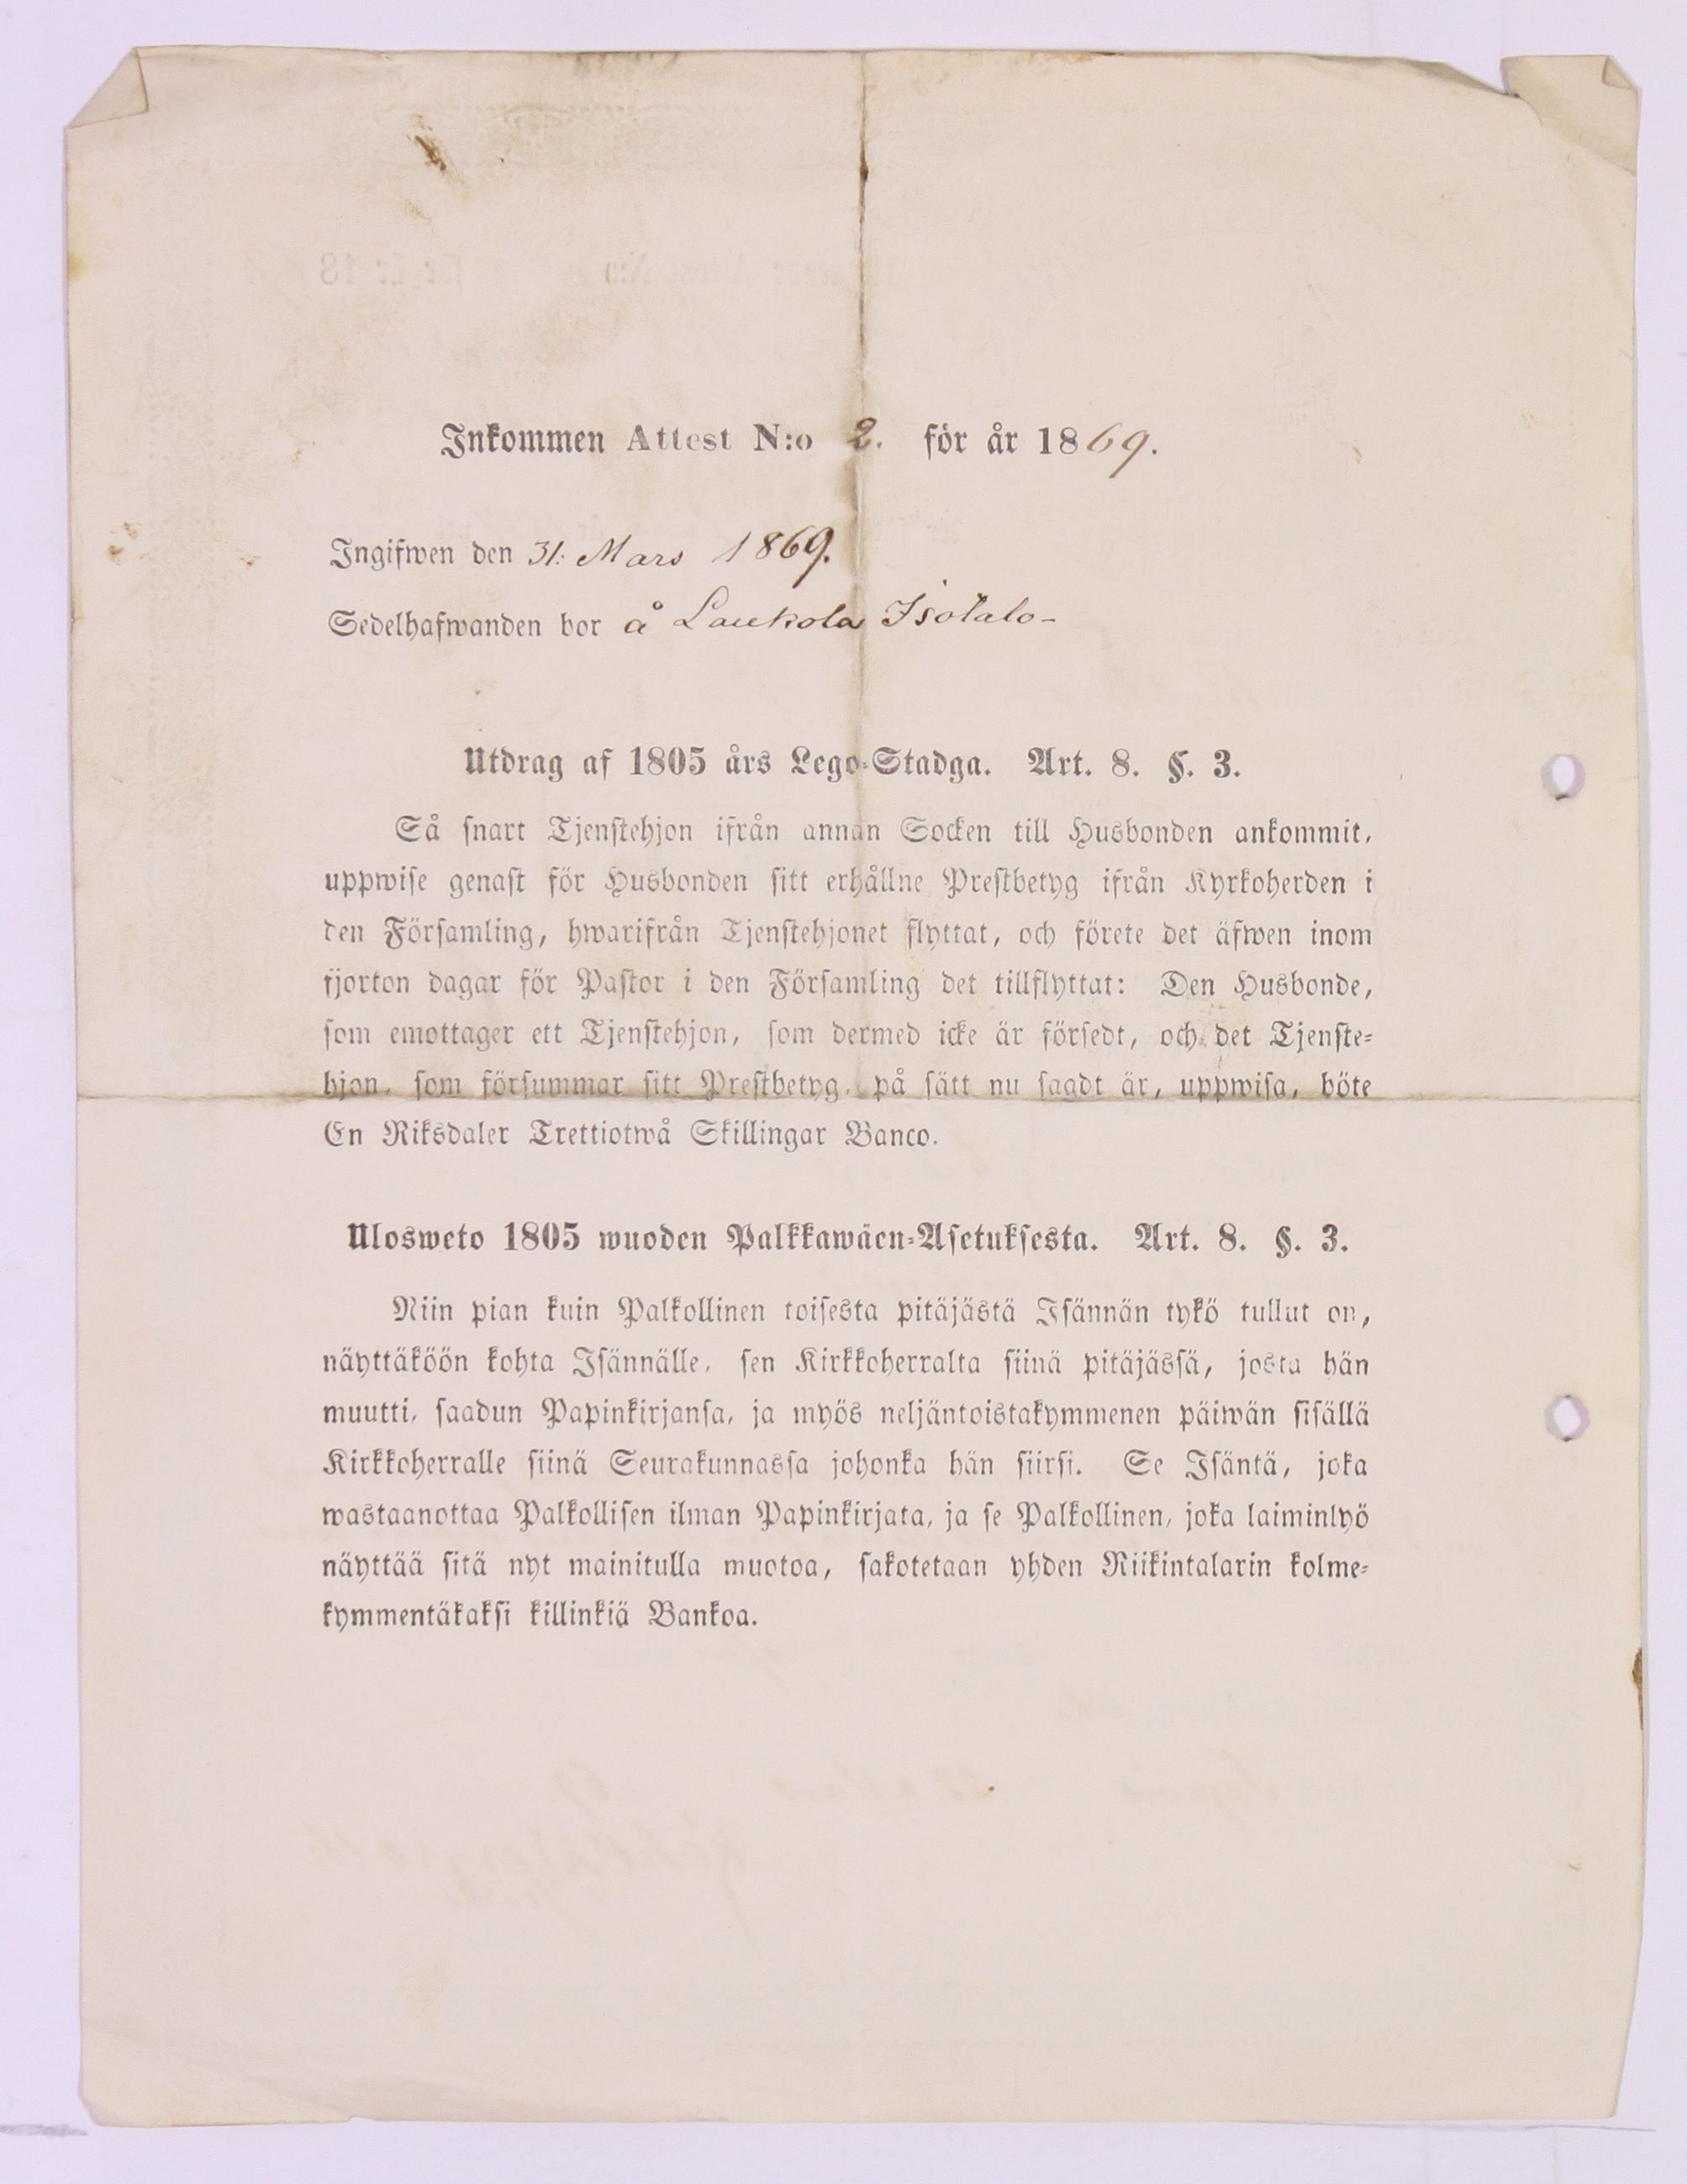 Inkommen Attest N:o 2. för år 1869.
Ingifwen den 31. Mars 1869.
Sedelhafwanden bor å Laukola Isotalo-
Utdrag af 1805 års Lego-Stadga. Art. 8. §. 3.
Så snart Tjenstehjon ifrån annan Socken till Husbonden ankommit,
uppwise genast för Husbonden sitt erhållne Prestbetyg ifrån Kyrkoherden i
den Församling, hwarifrån Tjenstehjonet flyttat, och förete det äfwen inom
fjorton dagar för Pastor i den Församling det tillflyttat: Den Husbonde,
som emottager ett Tjenstehjon, som dermed icke är försedt, och det Tjenste-
hjon, som försummar sitt Prestbetyg, på sätt nu sagdt är, uppwisa, böte
En Riksdaler Trettiotwå Skillingar Banco.
Ulosweto 1805 wuoden Palkkawäen-Asetuksesta. Art. 8. §. 3.
Niin pian kuin Palkollinen toisesta pitäjästä Isännän tykö tullut on,
näyttäköön kohta Isännälle, sen Kirkkoherralta siinä pitäjässä, josta hän
muutti, saadun Papinkirjansa, ja myös neljäntoistakymmenen päiwän sisällä
Kirkkoherralle siinä Seurakunnassa johonka hän siirsi. Se Isäntä, joka
wastaanottaa Palkollisen ilman Papinkirjata, ja se Palkollinen, joka laiminlyö
näyttää sitä nyt mainitulla muotoa, sakotetaan yhden Riikintalarin kolme-
kymmentäkaksi killinkiä Bankoa.